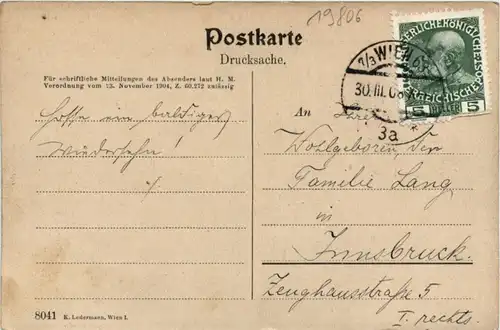 19806
Postkarte
Drucksache.
Für schriftliche Mitteilungen des Absenders laut H. M.
Verordnung vom 13. November 1904, Z. 60.212 zulässig
7/3 WIEN
30.III.08
3a
KAISERLICHE KÖNIGLICHE
ÖSTERREICHISCHE POST
5 HELLER 5
Hoffe ein baldiges
Wiedersehn!
An Ihre
Wohlgeboren, den
Familie Lang
in
Innsbruck.
Zeughausstraße 5
I. rechts.
8041 K. Ledermann, Wien I.